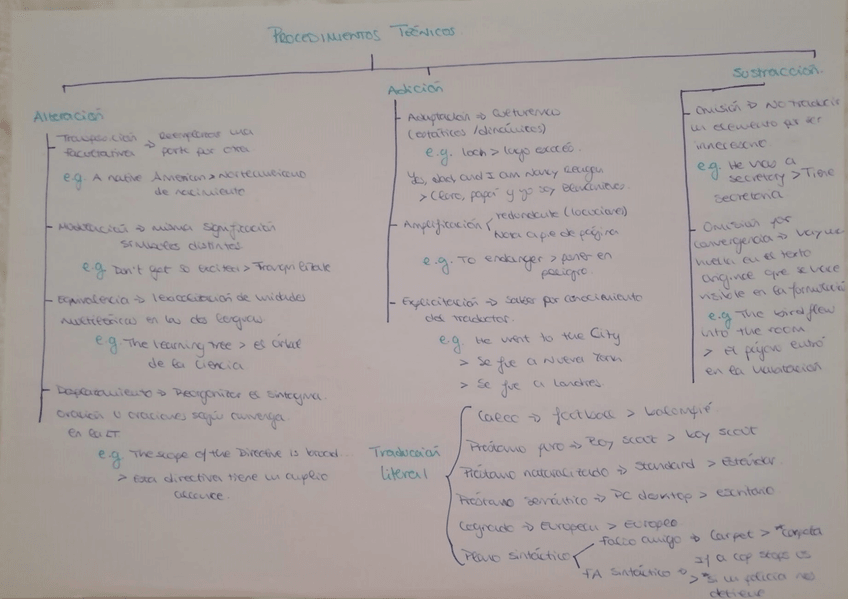 PROCEDIMIENTOS TÉCNICOS
Alteración
Transposición → Reemplazar una
facultativa parte por otra
e.g. A native American > Norteamericano
de nacimiento
Modulación → misma significación
símbolos distintos
e.g Don't get so excited > Tranquilízate
Equivalencia → de unidades
en las dos lenguas
e.g The learning tree > El árbol
de la Ciencia
Desplazamiento → Reorganizar el sintagma
oración u oraciones según convenga
en la LT.
e.g The scope of the Directive is broad
> Esta directiva tiene un amplio
alcance.
Adición
Adaptación → Culturema
(estáticos / dinámicos)
e.g. loch > lago escocés.
> Claro, papá y yo soy
Amplificación redundante (locuciones)
Nota a pie de página
e.g. To endanger > poner en
peligro.
Explicitación → Saber por conocimiento
del traductor.
e.g. He went to the City
> Se fue a Nueva York
> Se fue a Londres
Sustracción.
Omisión → No traducir
un elemento por ser
innecesario
e.g. He has a
secretary > Tiene
secretaria.
Omisión por
convergencia →
en el texto
que
visible en la formulación
e.g The bird flew
into the room
> El pájaro entró
en la habitación
Traducción
literal
Calco → football > balompié
Préstamo puro → Boy scout > boy scout
Préstamo naturalizado → standard > Estándar
Préstamo semántico → PC desktop > escritorio
Cognado → European > europeo
Plano sintáctico
Falso amigo → Carpet > *Carpeta
FA sintáctico → If a cop stops us
> *Si un policía nos
detiene